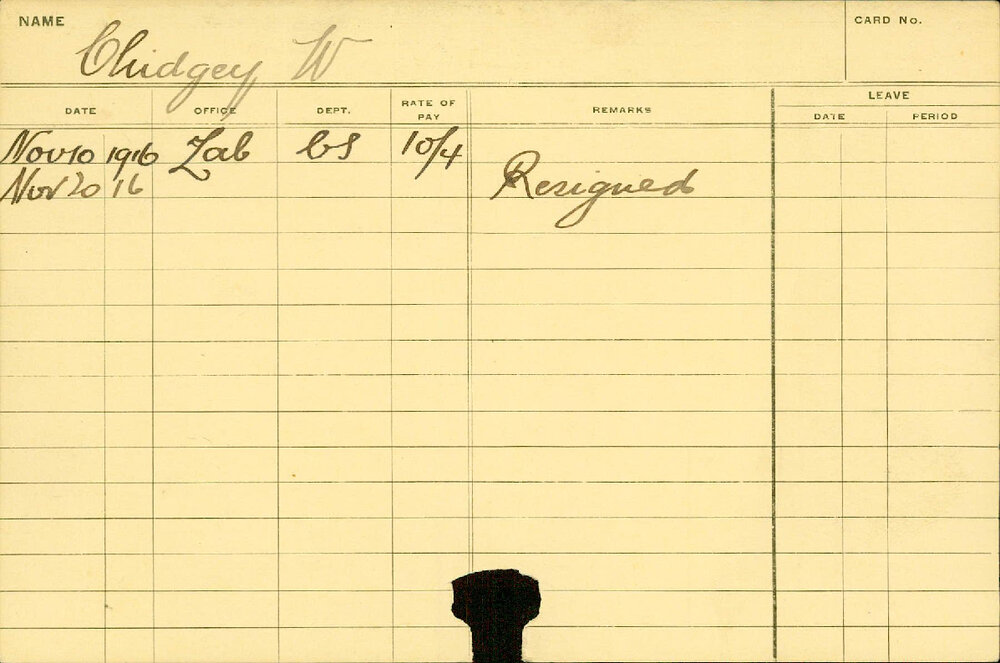 NAME Chidgey, W CARD No.
DATE OFFICE DEPT. RATE OF PAY REMARKS LEAVE
DATE PERIOD
Nov 10 1916 Lab CS 10/4
Nov 20 16 Resigned